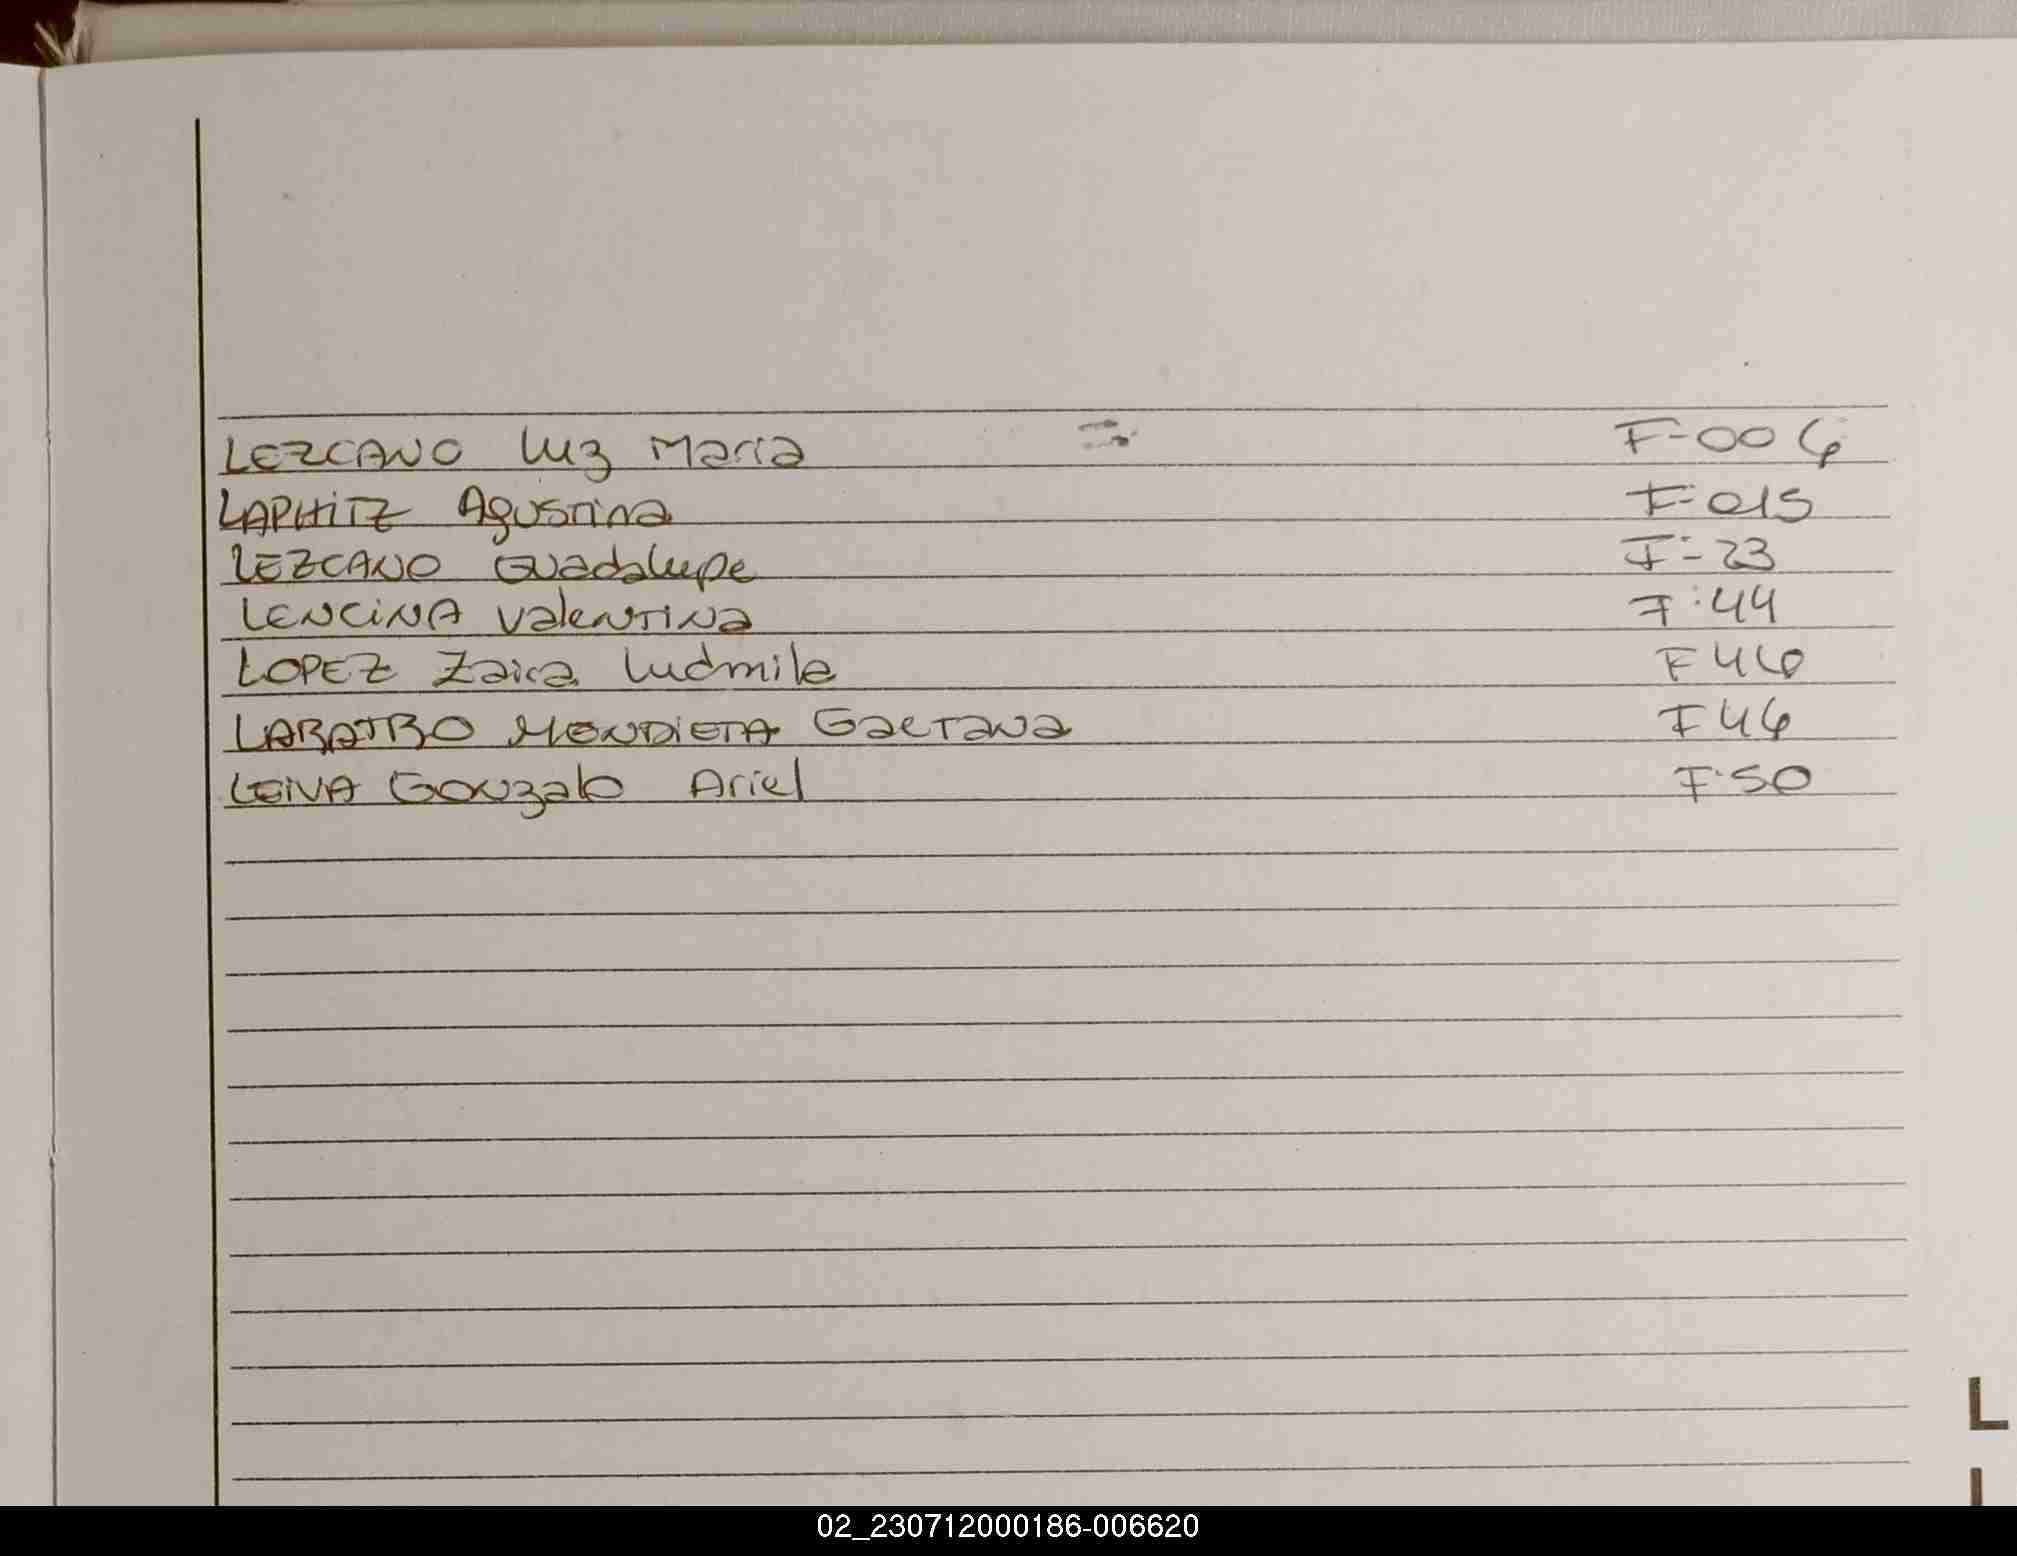 LEZCANO Luz Maria F-006
LAPHITZ Agustina F-015
LEZCANO Guadalupe F-23
LENCINA Valentina F:44
LOPEZ Zaira Ludmila F 46
MENDIETA Gaetana F 46
LEIVA Gonzalo Ariel F.50
L
02_230712000186-006620